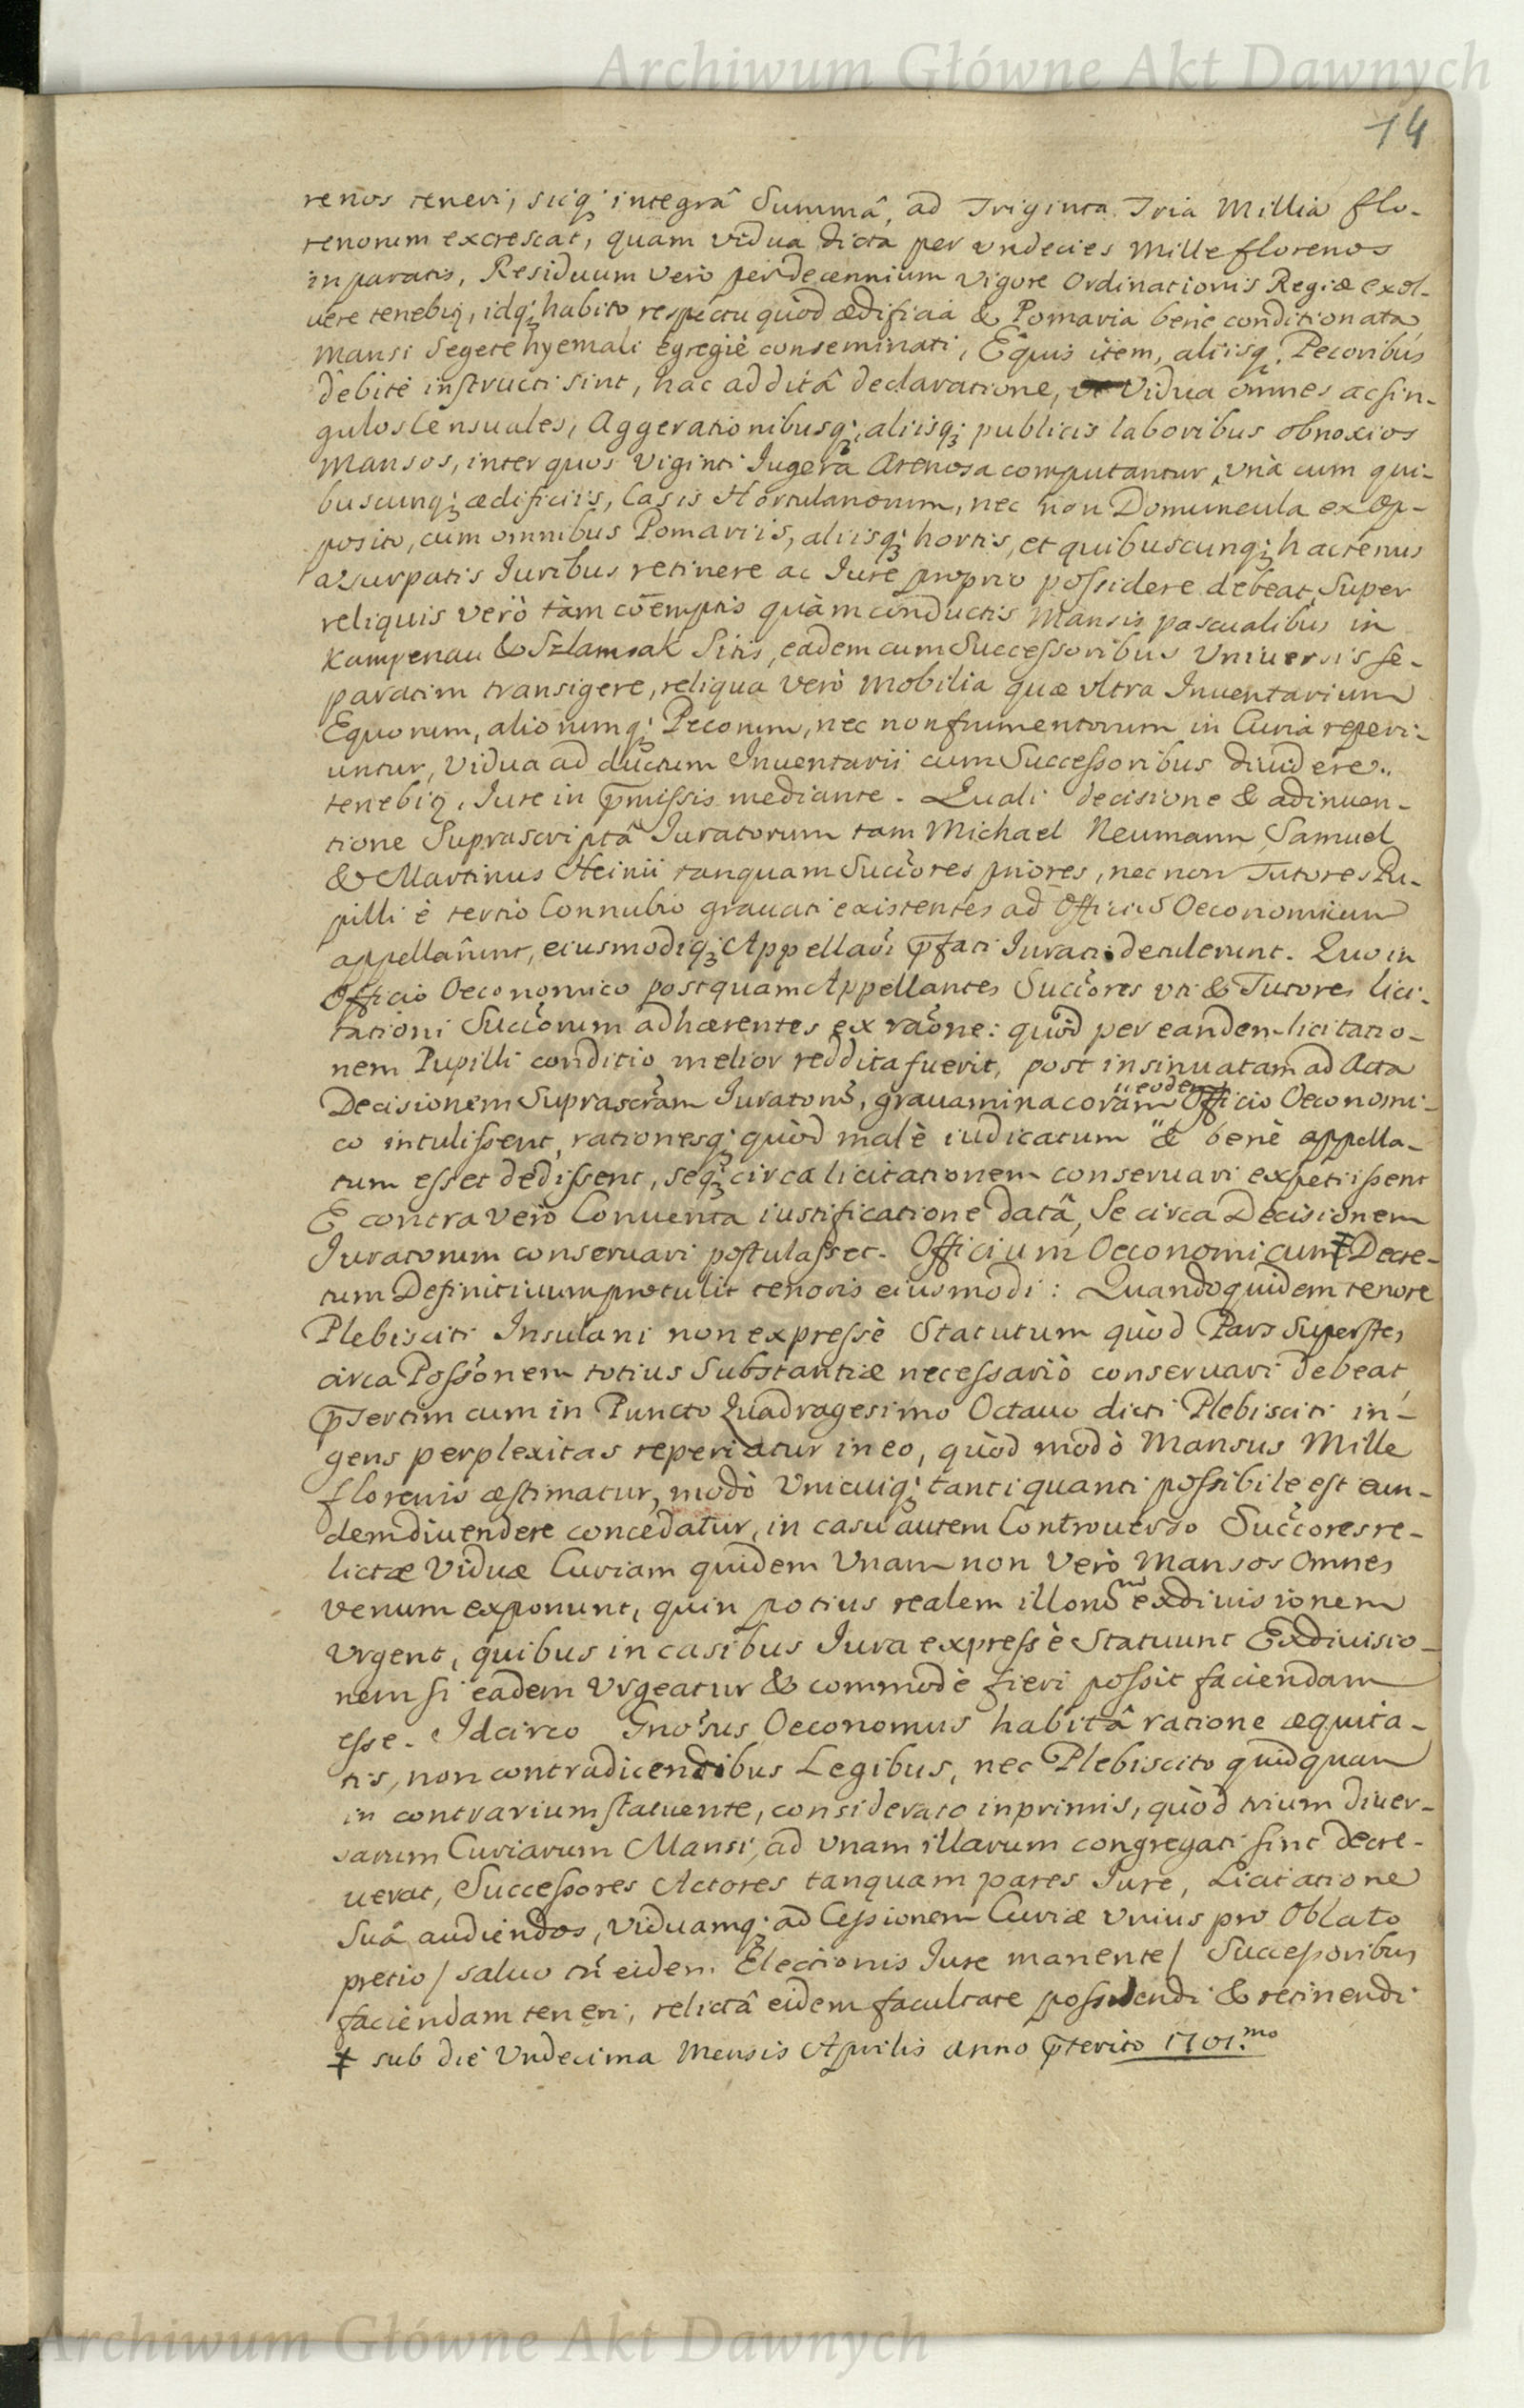 Archiwum Główne Akt Dawnych
14
renos teneri, sicq; integrâ Summâ, ad Triginta Tria Millia flo-
renorum excrescat, quam vidua dicta per vndecies Mille florenos
in paratis, Residuum verò per decennium vigore Ordinationis Regiæ exol-
uere tenebiţ, idq; habito respectu quòd ædificia & Pomaria benè conditionata
Mansi Segete hyemali egregiè conseminati, Equis item, aliisq; Pecoribus
debitè instructi sint, hac additâ declaratione, Vidua omnes ac sin-
gulos Censuales, Aggerationibusq;, aliisq; publicis laboribus obnoxios
Mansos, inter quos Viginti Iugera Arenosa computantur, vnà cum qui-
buscunq; ædificiis, Casis Hortulanorum, nec non Domuncula ex op-
posito, cum omnibus Pomariis, aliisq; hortis, et quibuscunq; hactenus
vsurpatis Iuribus retinere ac Iure proprio possidere debeat, Super
reliquis verò tàm coemptis quàm conductis Mansis pascualibus in
Kampenau & Szlamsak Sitis, eadem cum Successoribus Vniuersis se-
paratim transigere, reliqua verò Mobilia quæ vltra Inuentarium
Equorum, aliorumq; Pecorum, nec non frumentorum in Curia reperi-
untur, Vidua ad ductum Inuentarii cum Successoribus diuidere
tenebiţ, Iure in p̄missis mediante. Quali decisione & adinuen-
tione Suprascriptâ Iuratorum tam Michael Neumann Samuel
& Martinus Heinii tanquam Succ̃ores priores, nec non Tutores Pu-
pilli è tertio Connubio grauati existentes ad Officiũ Oeconomicum
appellârunt, eiusmodiq; Appellãoi p̄fati Iurati detulerunt. Quo in
Officio Oeconomico postquam Appellantes Succ̃ores vti & Tutores lici-
tationi Succ̃orum adhærentes ex raõne: quòd per eandem licitatio-
nem Pupilli conditio melior reddita fuerit, post insinuatam ad Acta
Decisionem Suprascr̃am Iuratorũ, grauamina coram eodem Officio Oeconomi-
co intulissent, rationesq; quòd malè iudicatum & benè appella-
tum esset dedissent, seq; circa licitationem conseruari expetiissent
E contra verò Conuenta iustificatione datâ, Se circa Decisionem
Iuratorum conseruari postulasset. Officium Oeconomicum ‡ Decre-
tum Definitiuum protulit tenoris eiusmodi: Quandoquidem tenore
Plebisciti Insulani non expressè Statutum quòd Pars Superstes
circa Possõnem totius Substantiæ necessariò conseruari debeat,
p̄sertim cum in Puncto Quadragesimo Octauo dicti Plebisciti in-
gens perplexitas reperiatur in eo, quòd modò Mansus Mille
florenis æstimatur, modò Vnicuiq; tanti quanti possibile est eun-
dem diuendere concedatur, in casu autem Controuerso Succ̃ores re-
lictæ Viduæ Curiam quidem Vnam non verò Mansos Omnes
venum exponunt, quin potius realem illorũ exdiuisionem
Vrgent, quibus in casibus Iura expressè Statuunt Exdiuisio-
nem si eadem Vrgeatur & commodè fieri possit faciendam
esse. Idcirco Gnõsus Oeconomus habitâ ratione æquita-
tis, non contradicentibus Legibus, nec Plebiscito quidquam
in contrarium statuente, considerato inprimis, quòd trium diuer-
sarum Curiarum Mansi, ad vnam illarum congregati sint decre-
uerat, Successores Actores tanquam pares Iure, Licitatione
Suâ audiendos, Viduamq; ad Cessionem Curiæ vnius pro Oblato
pretio / saluo tñ eidem Electionis Iure manente / Successoribus
faciendam teneri, relictâ eidem facultate possidendi & retinendi
‡ sub die Vndecima Mensis Aprilis Anno p̄terito 1701.mo
Archiwum Główne Akt Dawnych